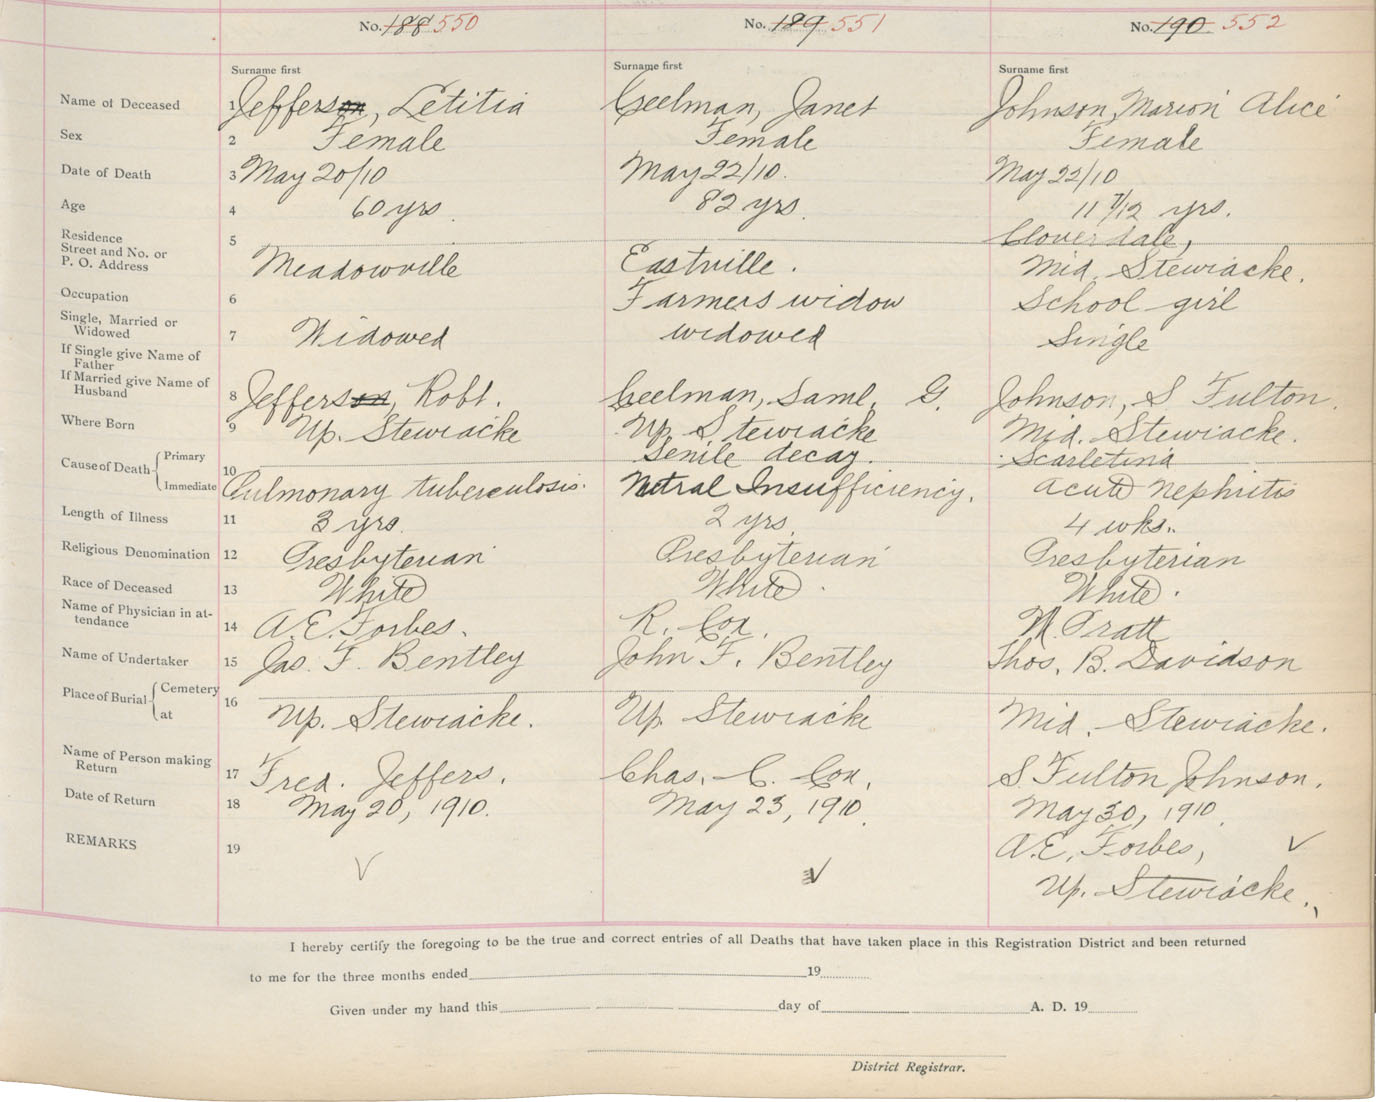 No. 188 550 No. 189 551 No. 190 552
Surname first Surname first Surname first
Name of Deceased 1 Jefferson, Letitia Creelman, Janet Johnson, Marion Alice
Sex 2 Female Female Female
Date of Death 3 May 20/10 May 22/10. May 22/10
Age 4 60 yrs. 82 yrs. 11 7/12 yrs.
Residence 5 Cloverdale,
Street and No. or
P. O. Address Meadowville Eastville. Mid. Stewiacke.
Occupation 6 Farmers widow School girl
Single, Married or
Widowed 7 Widowed widowed Single
If Single give Name of
Father
If Married give Name of
Husband 8 Jefferson, Robt. Creelman, Saml. G. Johnson, S Fulton.
Where Born 9 Up. Stewiacke Up. Stewiacke Mid. Stewiacke.
Cause of Death Primary 10 Senile decay. Scarletina
Immediate Pulmonary tuberculosis. Mitral Insufficiency. acute nephritis
Length of Illness 11 3 yrs. 2 yrs. 4 wks.
Religious Denomination 12 Presbyterian Presbyterian Presbyterian
Race of Deceased 13 White White. White.
Name of Physician in at-
tendance 14 A. E. Forbes. R. Cox. M. Pratt
Name of Undertaker 15 Jas. F. Bentley John F. Bentley Thos. B. Davidson
Place of Burial Cemetery 16
at Up. Stewiacke. Up Stewiacke Mid. Stewiacke.
Name of Person making
Return 17 Fred. Jeffers. Chas. C. Cox. S. Fulton Johnson.
Date of Return 18 May 20, 1910. May 23, 1910. May 30, 1910.
REMARKS 19 A. E. Forbes,
Up. Stewiacke.
I hereby certify the foregoing to be the true and correct entries of all Deaths that have taken place in this Registration District and been returned
to me for the three months ended 19
Given under my hand this day of A. D. 19
District Registrar.